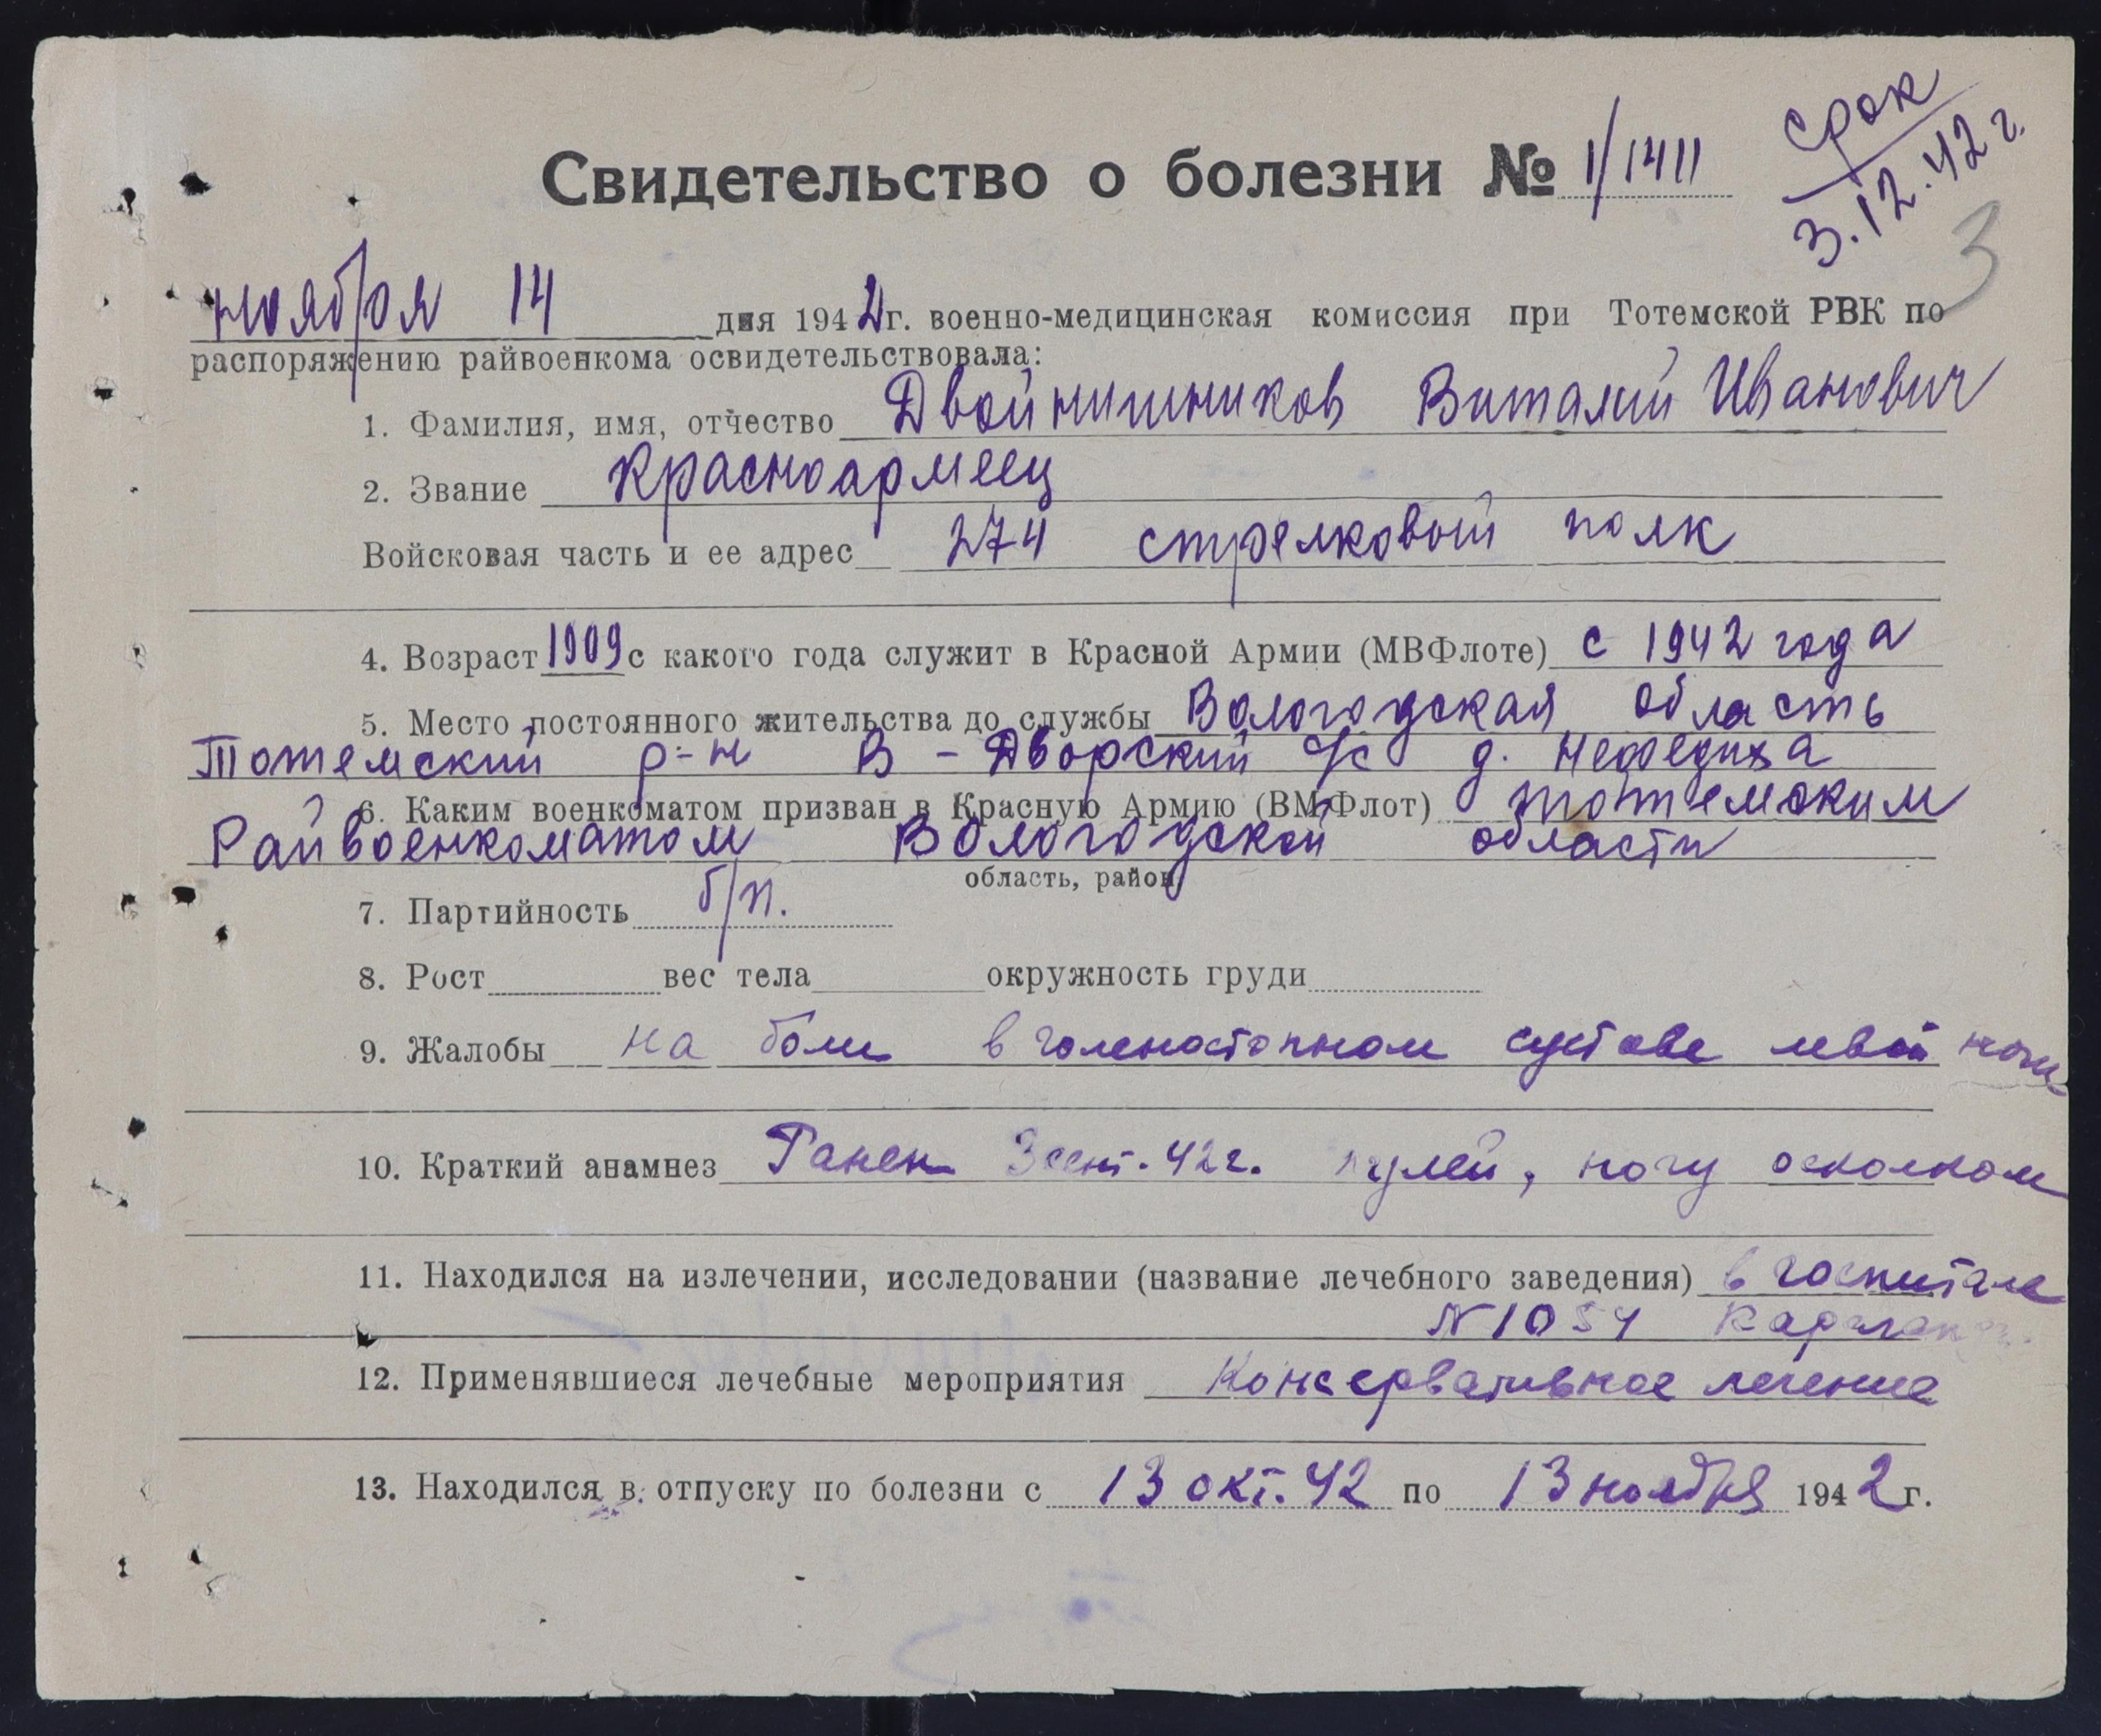 срок
3.12.42 г.
Свидетельство о болезни № 1/1411
3
ноября 14 дня 1942 г. военно-медицинская комиссия при Тотемской РВК по
распоряжению райвоенкома освидетельствовала:
1. Фамилия, имя, отчество Двойнишников Виталий Иванович
2. Звание красноармеец
Войсковая часть и ее адрес 274 стрелковый полк
4. Возраст 1909 с какого года служит в Красной Армии (МВФлоте) с 1942 года
5. Место постоянного жительства до службы Вологодская область
Тотемский р-н В-Дворский с/с д. Нефедиха
6. Каким военкоматом призван в Красную Армию (ВМФлот) тотемским
Райвоенкоматом Вологодской области
область, район
7. Партийность б/п.
8. Рост вес тела окружность груди
9. Жалобы на боли в голеностопном суставе левой ноги
10. Краткий анамнез Ранен 3 сент. 42 г. пулей, ногу осколком
11. Находился на излечении, исследовании (название лечебного заведения) в госпитале
N 1054
12. Применявшиеся лечебные мероприятия Консервативное лечение
13. Находился в отпуску по болезни с 13 окт. 42 по 13 ноября 1942 г.